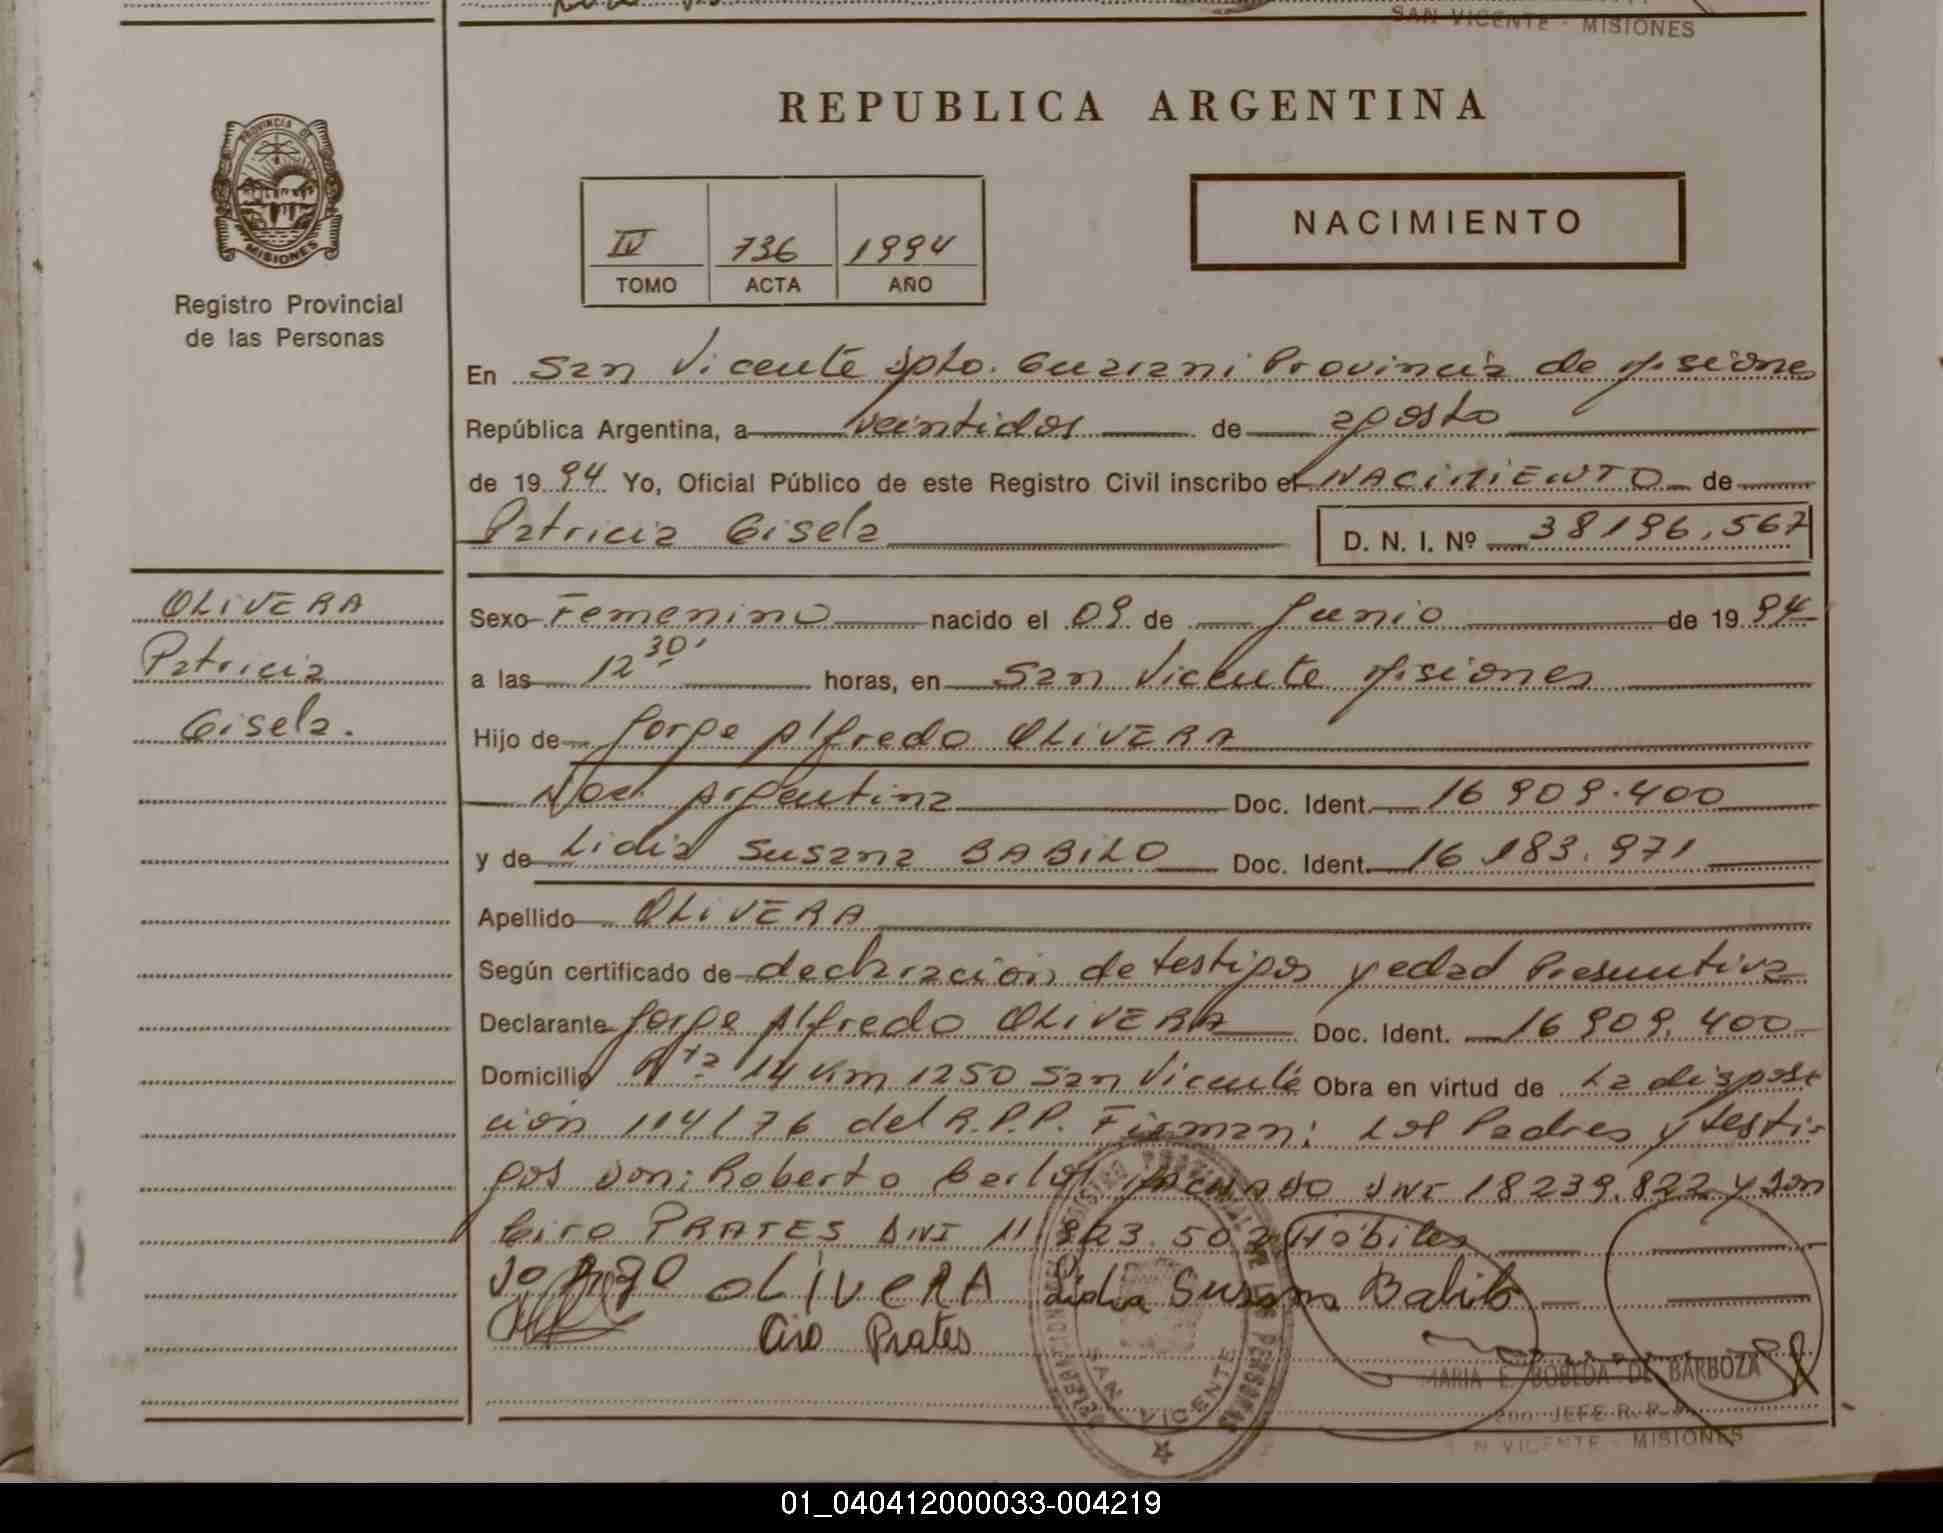 SAN VICENTE - MISIONES
REPUBLICA ARGENTINA
PROVINCIA DE
MISIONES
Registro Provincial
de las Personas
IV 736 1994
TOMO ACTA AÑO
NACIMIENTO
En San Vicente Dpto. Guarani Provincia de Misiones
República Argentina, a veintidos de agosto
de 1994 Yo, Oficial Público de este Registro Civil inscribo el NACIMIENTO de
Patricia Gisela D. N. I. Nº 38196.567
OLIVERA
Patricia
Gisela.
Sexo Femenino nacido el 09 de Junio de 1994
a las 12 30' horas, en San Vicente Misiones
Hijo de Jorge Alfredo OLIVERA
Nac. Argentina Doc. Ident. 16 909.400
y de Lidia Susana BABILO Doc. Ident. 16.183.971
Apellido OLIVERA
Según certificado de declaración de testigos y edad Presuntiva
Declarante Jorge Alfredo OLIVERA Doc. Ident. 16 909.400
Domicilio Rta 14 Km 1250 San Vicente Obra en virtud de La disposi
ción 114/76 del R.P.P. Firman: Los Padres y testi-
gos Don: Roberto Carlos MACHADO DNI 18239.822 y Don
Ciro PRATES DNI 11.823.502 Hábiles
Jorge OLIVERA Lidia Susana Babilo
Ciro Prates
SAN VICENTE
MARIA E. BOBEDA DE BARBOZA
JEFE R. P. P.
N VICENTE - MISIONES
01_040412000033-004219